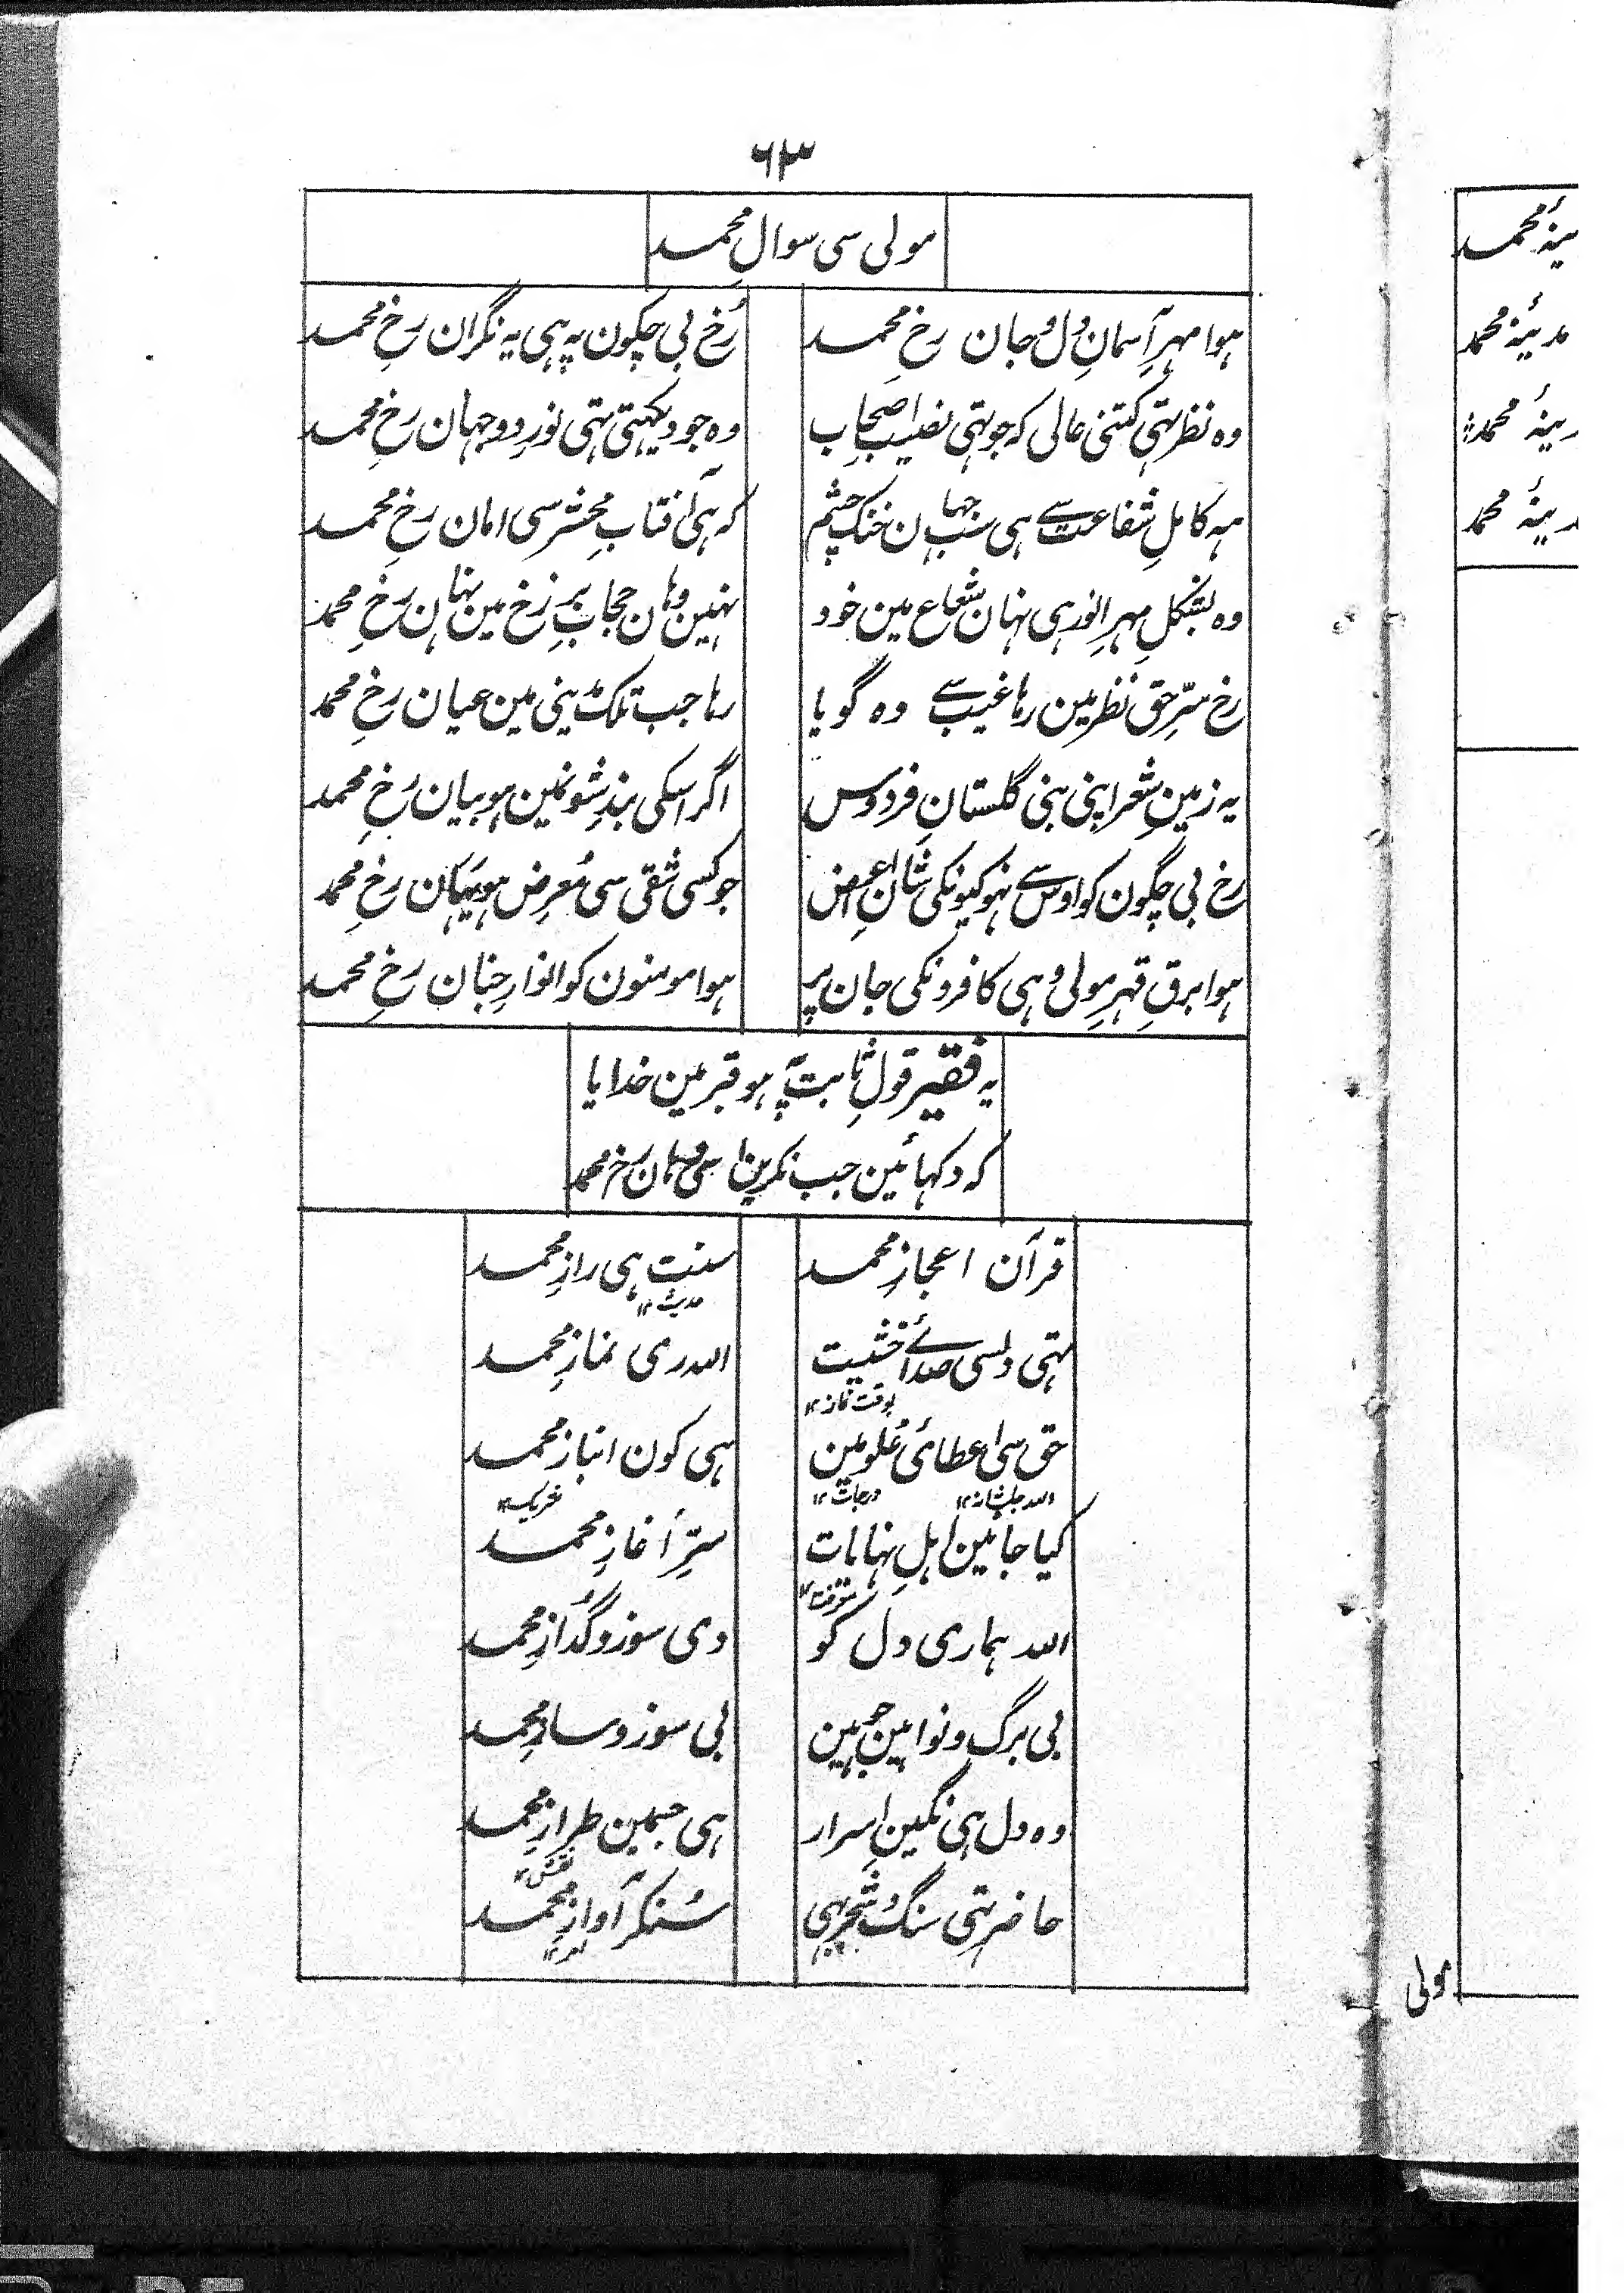 ۶۳
مولی سی سوالِ محمد
ہوا مہرِ آسمانِ دل و جان رخِ محمد
رُخ بی چگون پہ ہی یہ نگران رخِ محمد
وہ نظر تہی کتنی عالی کہ جو تہی نصیبِ اصحاب
وہ جو دیکہتی تہی نورِ دوجہان رخِ محمد
ہہ کاملِ شفاعت سے ہی سب جہان خنک چشم
کہ ہی آفتابِ محشر سی امان رخِ محمد
وہ بشکلِ مہرِ انور ہی نہان شعاع مین خود
نہین وہان حجابِ برزخ مین نہان رخِ محمد
رخ سرِّ حق نظر مین رہا غیب سے وہ گویا
رہا جب تلک مدینی مین عیان رخِ محمد
یہ زمینِ شعر اپنی بنی گلستانِ فردوس
اگر اسکی بندشونمین ہو بیان رخِ محمد
رخ بی چگون کو اوس سے نہو کیونکی شانِ اعراض
جو کسی شقی سی مُعرِض ہو یہان رخِ محمد
ہوا برقِ قہرِ مولی وہی کافرونکی جان پر
ہوا مومنون کو انوارِ جنان رخِ محمد
یہ فقیر قولِ ثابت پہ ہو قبر مین خدایا
کہ دکہائین جب نکیرین اسی وہان رخ محمد
قرآن اعجازِ محمد
سنت ہی رازِ محمد
حدیث ۱۲
تہی دلسی صدائے خشیت
اللہ ری نمازِ محمد
بوقت نماز ۱۲
حق سی اعطائی عُلو مین
ہی کون انبازِ محمد
اللہ جلشانہ ۱۲
درجات ۱۲
شریک ۱۲
کیا جانین اہلِ نہایات
سِرِّ آغازِ محمد
معرفت ۱۲
اللہ ہماری دل کو
دی سوز و گُدازِ محمد
بی برگ و نوا ہین جو ہین
بی سوز و سازِ محمد
وہ دل ہی نگینِ اسرار
ہی جسمین طرازِ محمد
نقش ۱۲
حاضر تہی سنگ و شجر بہی
سُنکر آوازِ محمد
مدینۂ محمد
مدینۂ محمد
مولی